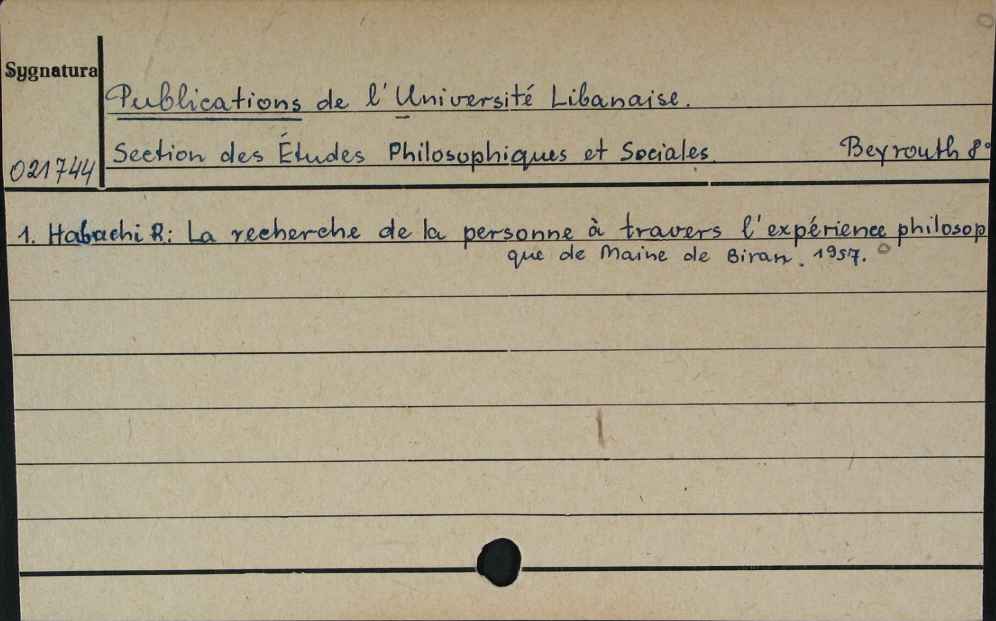 Sygnatura
Publications de l'Université Libanaise.
021744 Section des Études Philosophiques et Sociales. Beyrouth 8°
1. Habachi R: La recherche de la personne à travers l'expérience philosop
que de Maine de Biran. 1957.